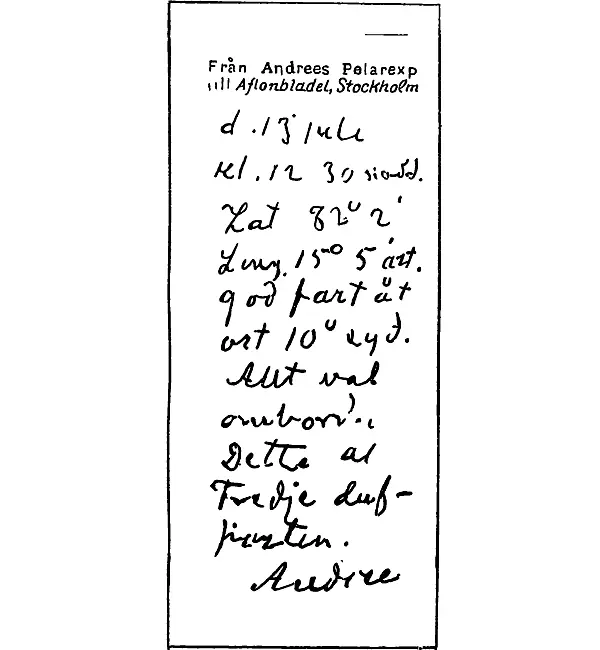 Från Andrees Polarexp
till Aftonbladet, Stockholm
d. 13 juli
kl. 12 30 midd.
Lat 82° 2'
Long. 15° 5' öst.
god fart åt
ost 10° syd.
Allt val
ombord.
Detta ar
Tredje duf-
posten.
Andrée